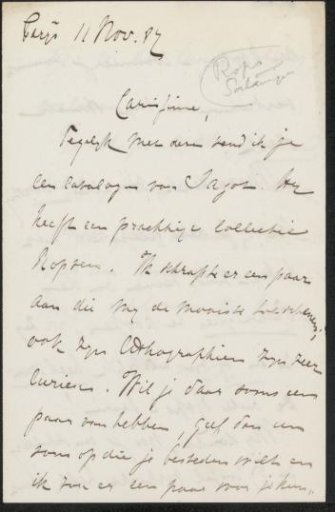 Parijs 11 Nov. 87
Rops
Carissime,
Tegelijk met dezen zend ik je
een catalogus van Sagot. Hij
heeft een prachtige collectie
Ropsen. Ik schrapte er een paar
aan die mij de mooiste toeschenen;
ook zijn lithographiën zijn zeer
curieus. Wil je daar soms een
paar van hebben geef dan een
som op die je besteden wilt en
ik zoek er een paar voor je uit.